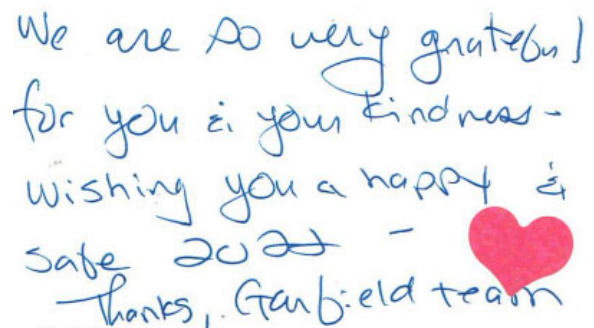 We are so very grateful
for you & your kindness -
wishing you a happy &
safe 2022 -
Thanks, Garfield team